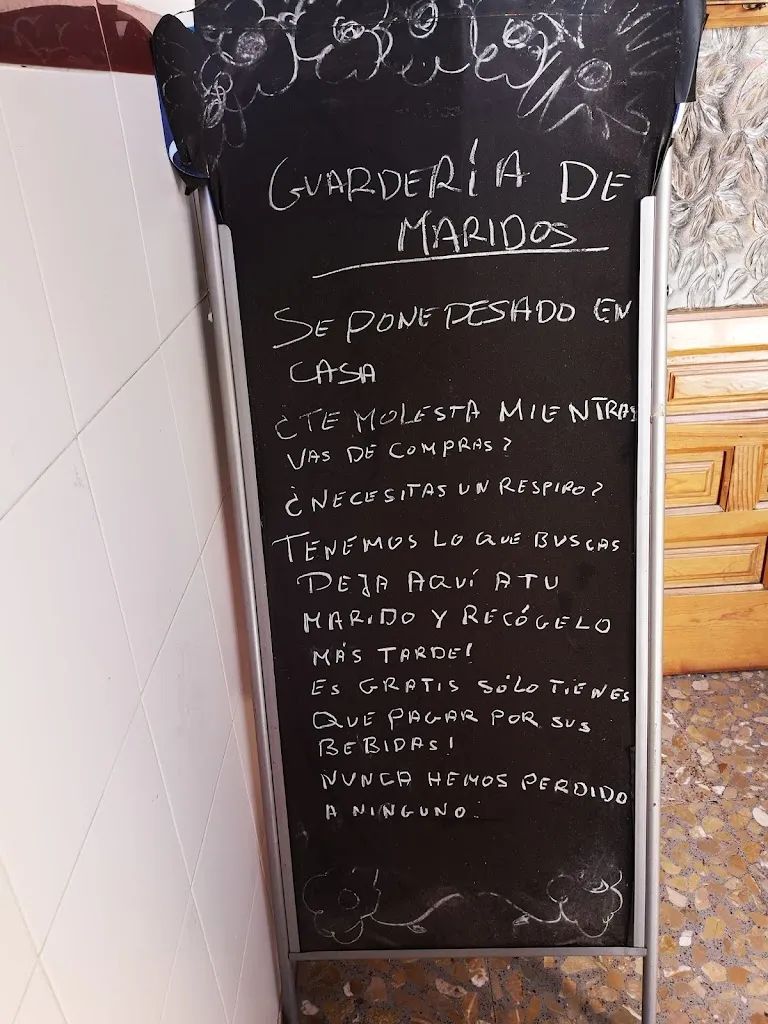 GUARDERÍA DE
MARIDOS
SE PONE PESADO EN
CASA
¿TE MOLESTA MIENTRAS
VAS DE COMPRAS?
¿NECESITAS UN RESPIRO?
TENEMOS LO QUE BUSCAS
DEJA AQUÍ A TU
MARIDO Y RECÓGELO
MÁS TARDE!
ES GRATIS SÓLO TIENES
QUE PAGAR POR SUS
BEBIDAS!
NUNCA HEMOS PERDIDO
A NINGUNO.